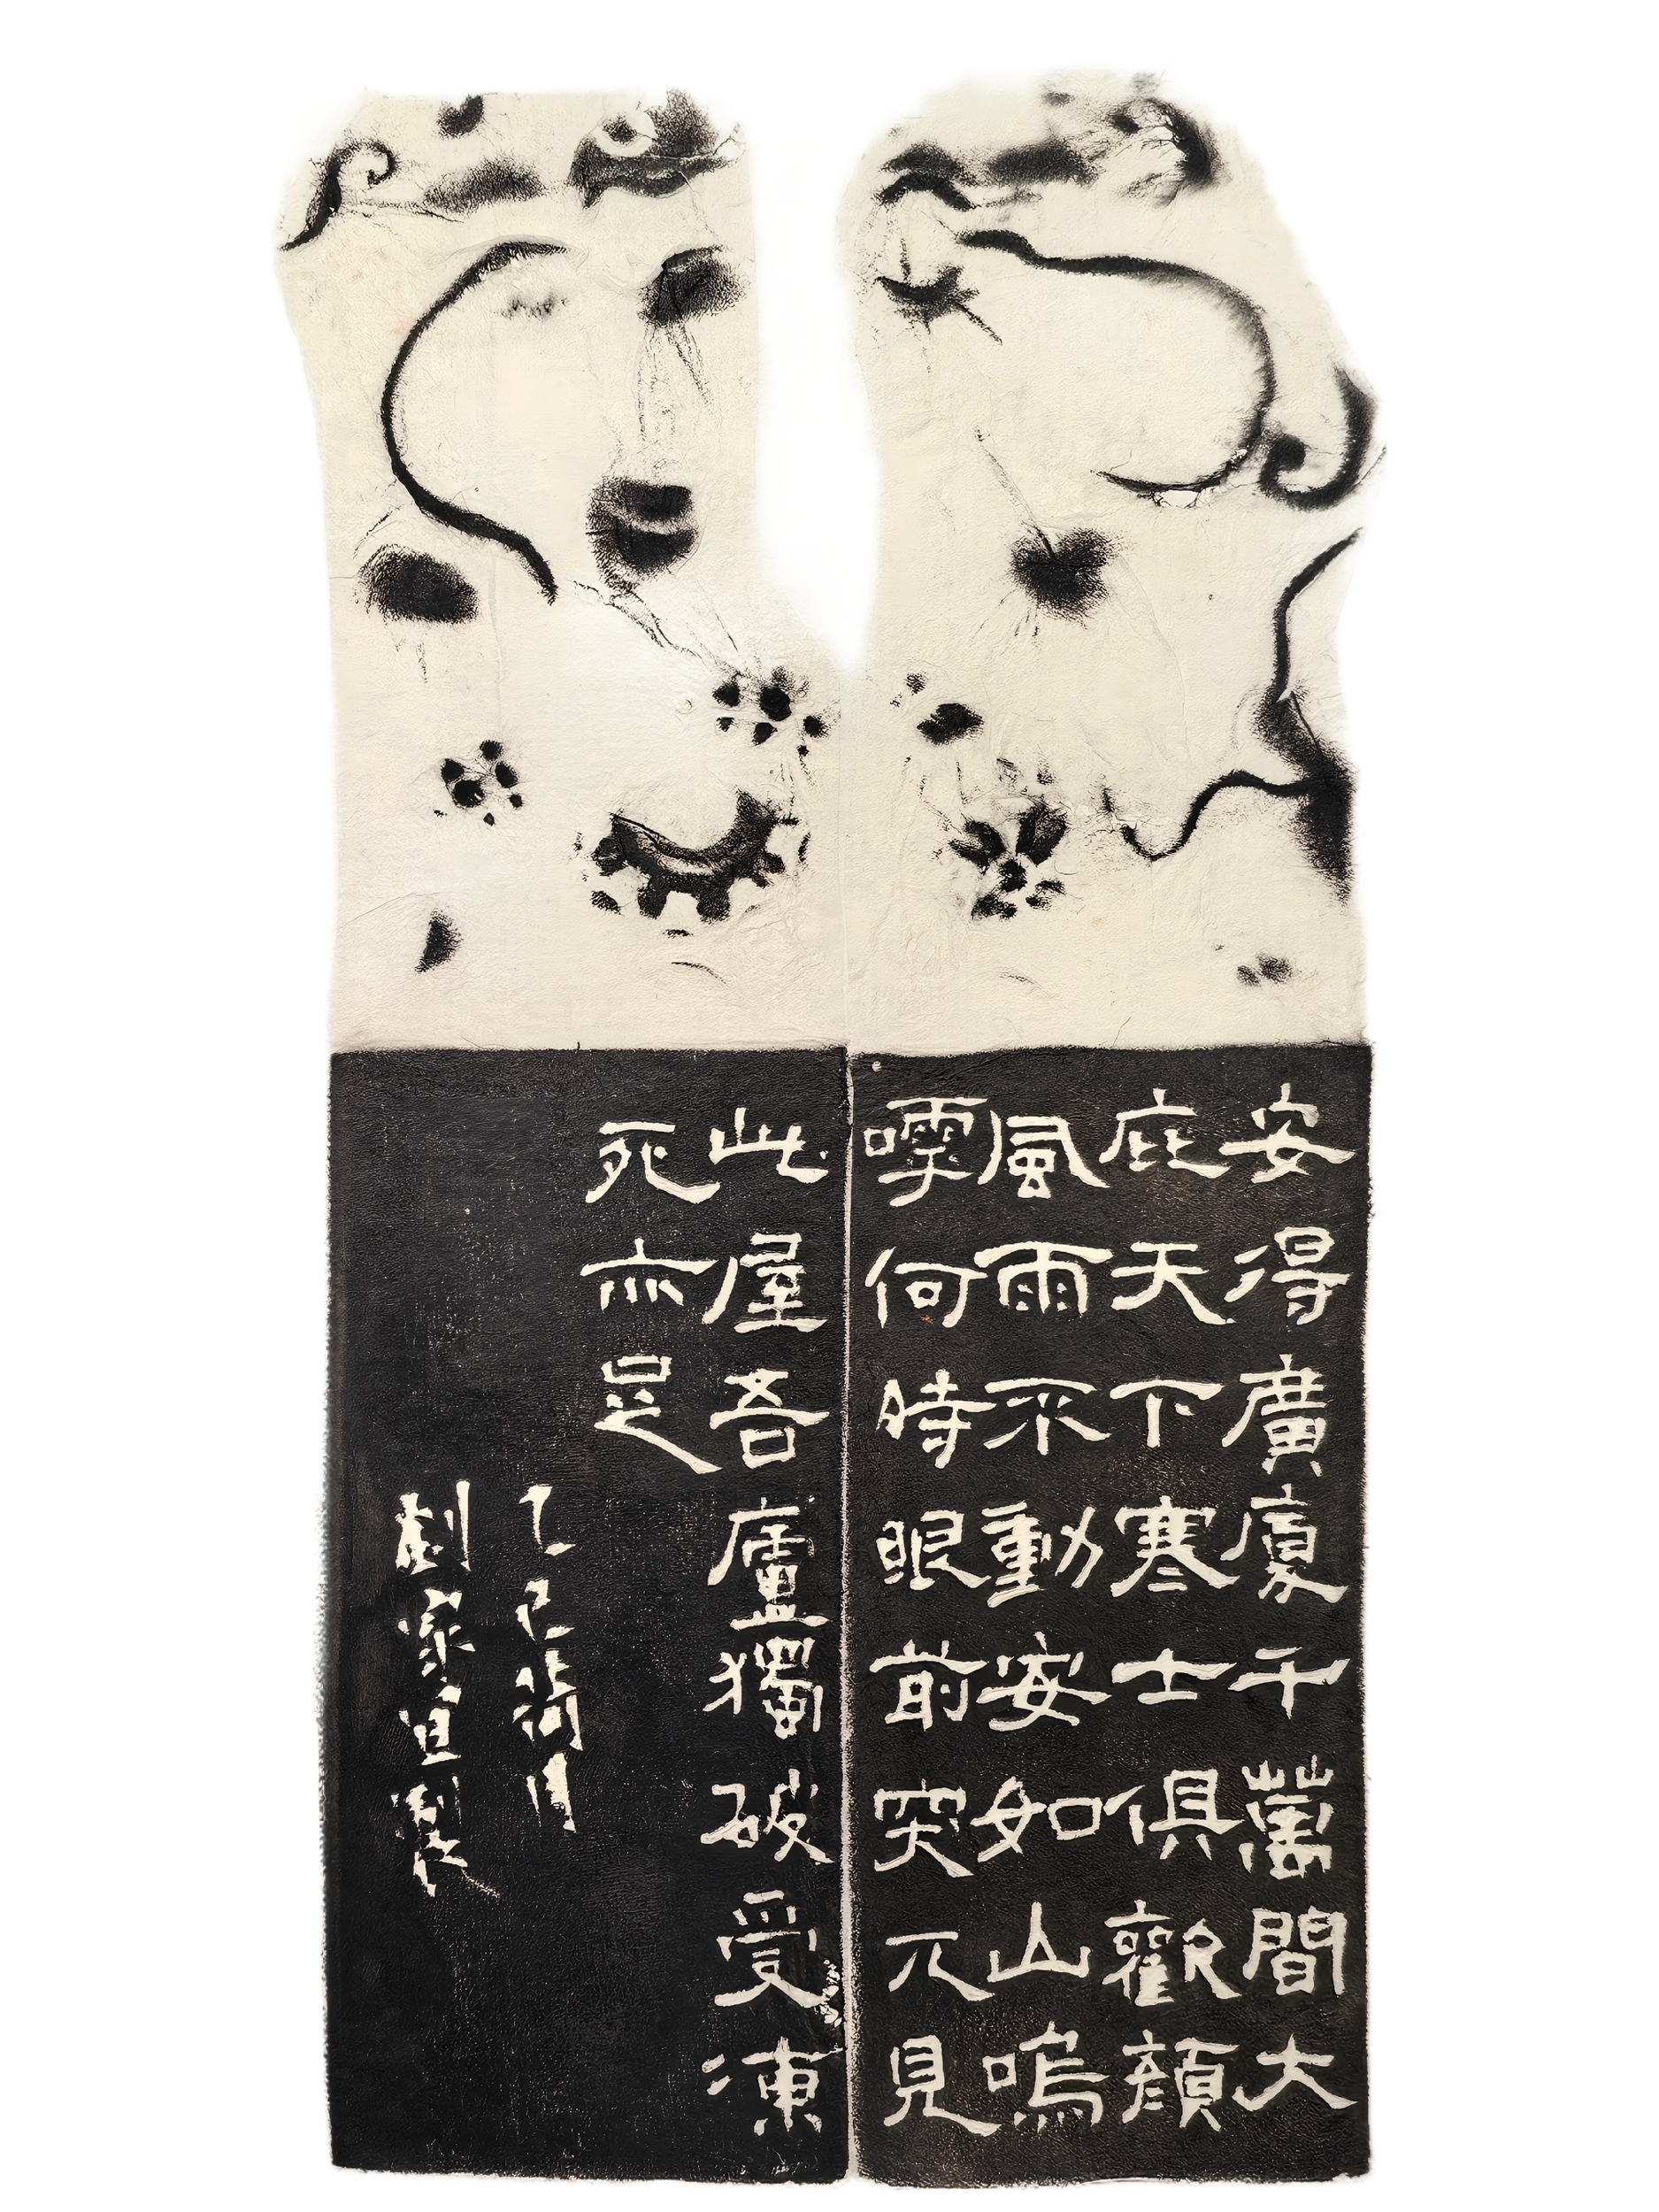 安得廣廈千萬間大
庇天下寒士俱歡顏
風雨不動安如山嗚
嘑何時眼前突兀見
此屋吾廬獨破受凍
死亦足
乙巳 月
劉家